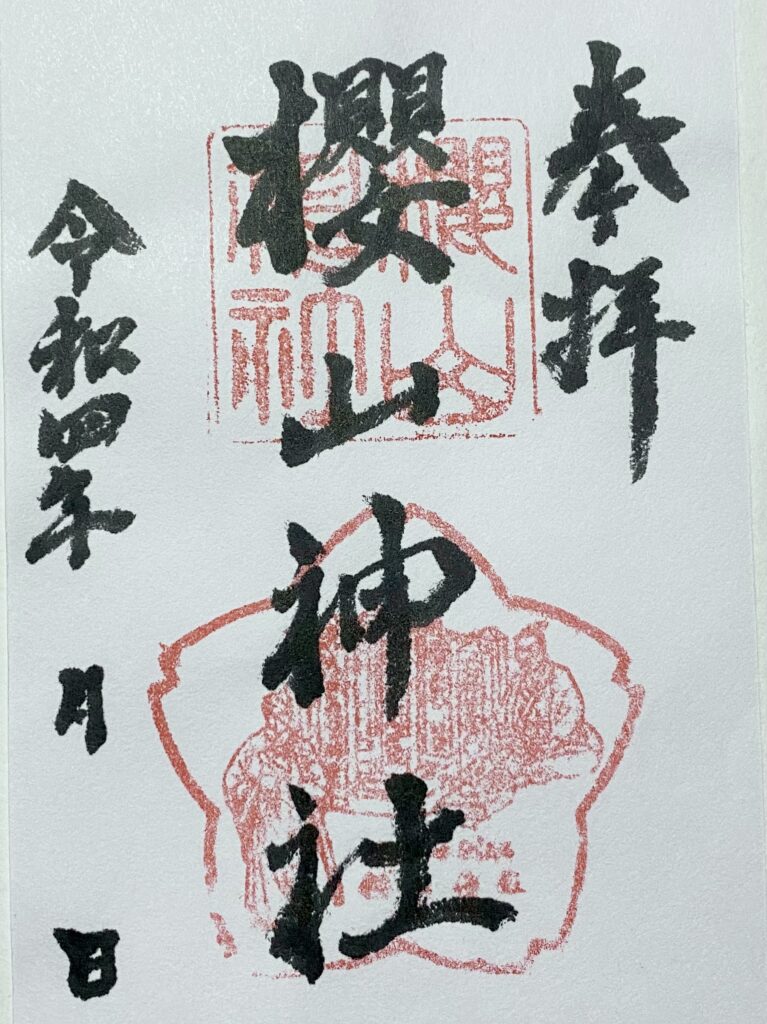 奉拝
櫻山神社
櫻山
神社
令和四年 月 日